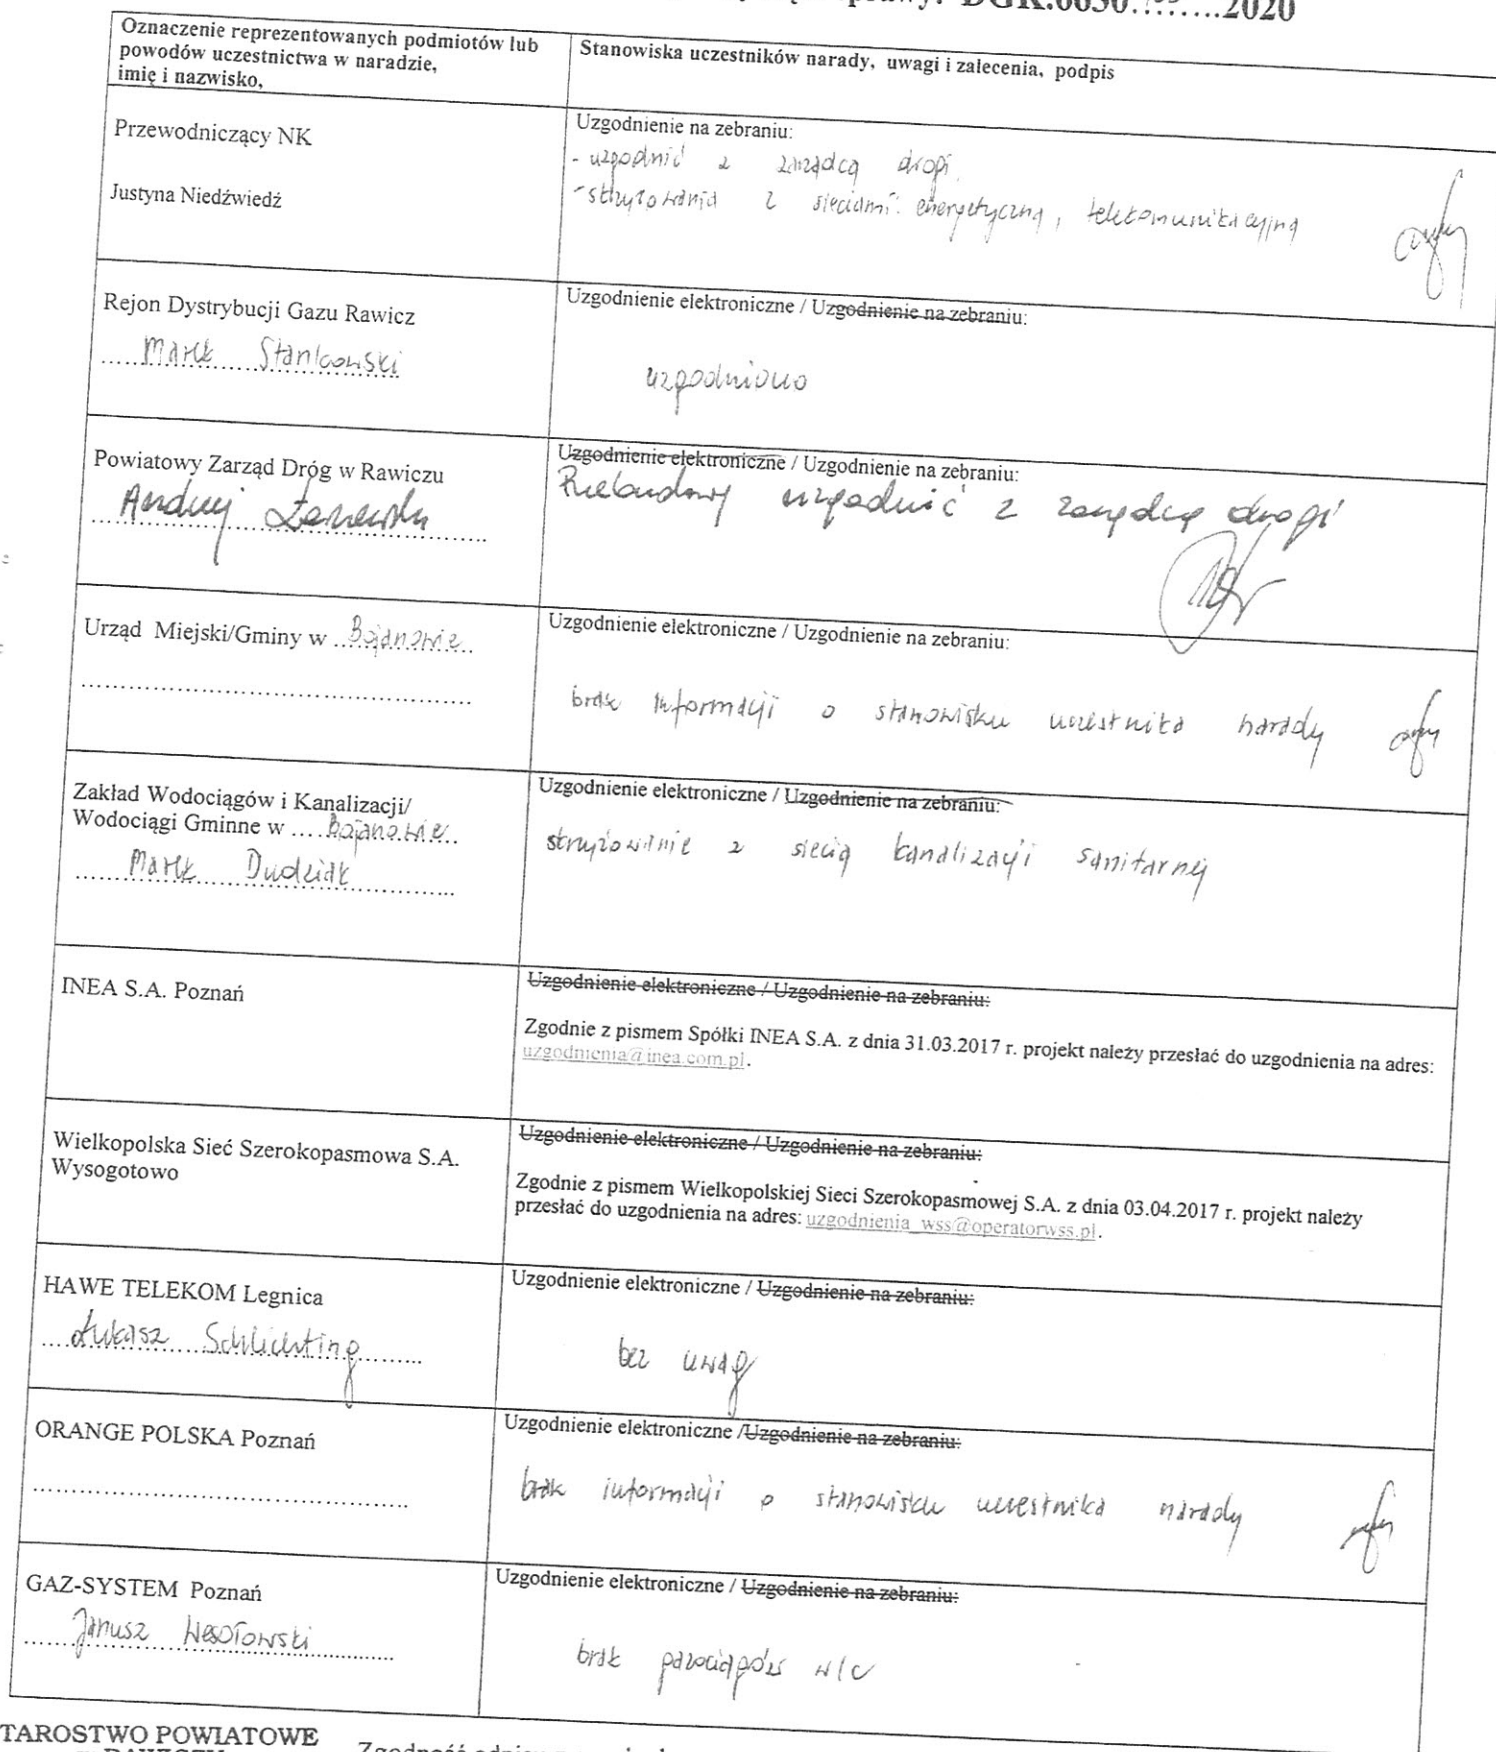 DGK.6630.........2020
Oznaczenie reprezentowanych podmiotów lub
powodów uczestnictwa w naradzie,
imię i nazwisko,
Stanowiska uczestników narady, uwagi i zalecenia, podpis
Przewodniczący NK
Justyna Niedźwiedź
Uzgodnienie na zebraniu:
- uzgodnić z zarządcą drogi.
- skrzyżowania z sieciami: energetyczną, telekomunikacyjną
Rejon Dystrybucji Gazu Rawicz
Marek Stankowski
Uzgodnienie elektroniczne / Uzgodnienie na zebraniu:
uzgodniono
Powiatowy Zarząd Dróg w Rawiczu
Andrzej
Uzgodnienie elektroniczne / Uzgodnienie na zebraniu:
uzgodnić z zarządcą drogi
Urząd Miejski/Gminy w Bojanowie
Uzgodnienie elektroniczne / Uzgodnienie na zebraniu:
brak informacji o stanowisku uczestnika narady
Zakład Wodociągów i Kanalizacji/
Wodociągi Gminne w Bojanowie
Marek Dudziak
Uzgodnienie elektroniczne / Uzgodnienie na zebraniu:
skrzyżowanie z siecią kanalizacji sanitarnej
INEA S.A. Poznań
Uzgodnienie elektroniczne / Uzgodnienie na zebraniu:
Zgodnie z pismem Spółki INEA S.A. z dnia 31.03.2017 r. projekt należy przesłać do uzgodnienia na adres:
uzgodnienia@inea.com.pl.
Wielkopolska Sieć Szerokopasmowa S.A.
Wysogotowo
Uzgodnienie elektroniczne / Uzgodnienie na zebraniu:
Zgodnie z pismem Wielkopolskiej Sieci Szerokopasmowej S.A. z dnia 03.04.2017 r. projekt należy
przesłać do uzgodnienia na adres: uzgodnienia_wss@operatorwss.pl.
HAWE TELEKOM Legnica
Łukasz Schlichting
Uzgodnienie elektroniczne / Uzgodnienie na zebraniu:
bez uwag
ORANGE POLSKA Poznań
Uzgodnienie elektroniczne /Uzgodnienie na zebraniu:
brak informacji o stanowisku uczestnika narady
GAZ-SYSTEM Poznań
Janusz Wesołowski
Uzgodnienie elektroniczne / Uzgodnienie na zebraniu:
brak gazociągów w/c
TAROSTWO POWIATOWE